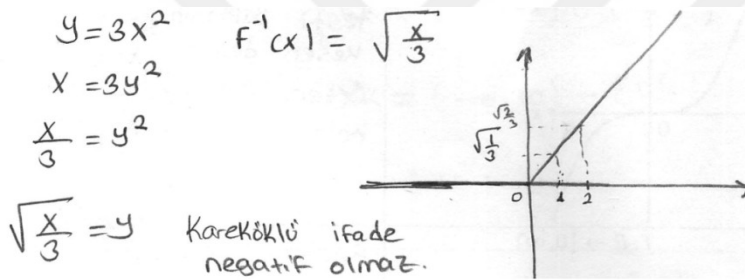 y = 3x² f⁻¹(x) = √(x/3)
x = 3y²
x/3 = y²
√(x/3) = y Kareköklü ifade
negatif olmaz.
√(2/3)
√(1/3)
0 1 2